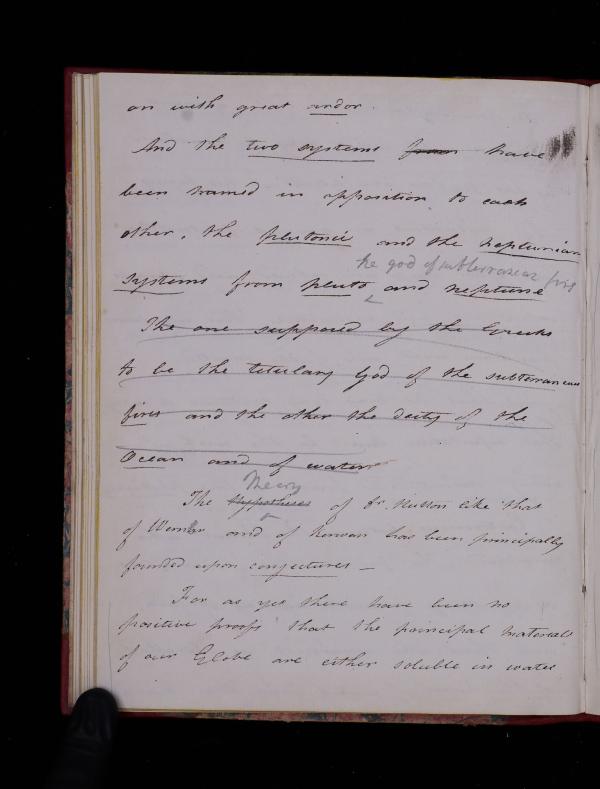 on with great ardor.
And the two systems from have
been named in opposition to each
other, the plutonic and the neptunian
the god of subterranean fires
systems from pluto and neptune
The one supposed by the Greeks
to be the titulary God of the subterraneous
fires and the other the deity of the
Ocean and of water
Theory
The Hypotheses of Dr. Hutton like that
of Werner and of Kirwan has been principally
founded upon conjectures —
For as yet there have been no
positive proofs that the principal materials
of our Globe are either soluble in water